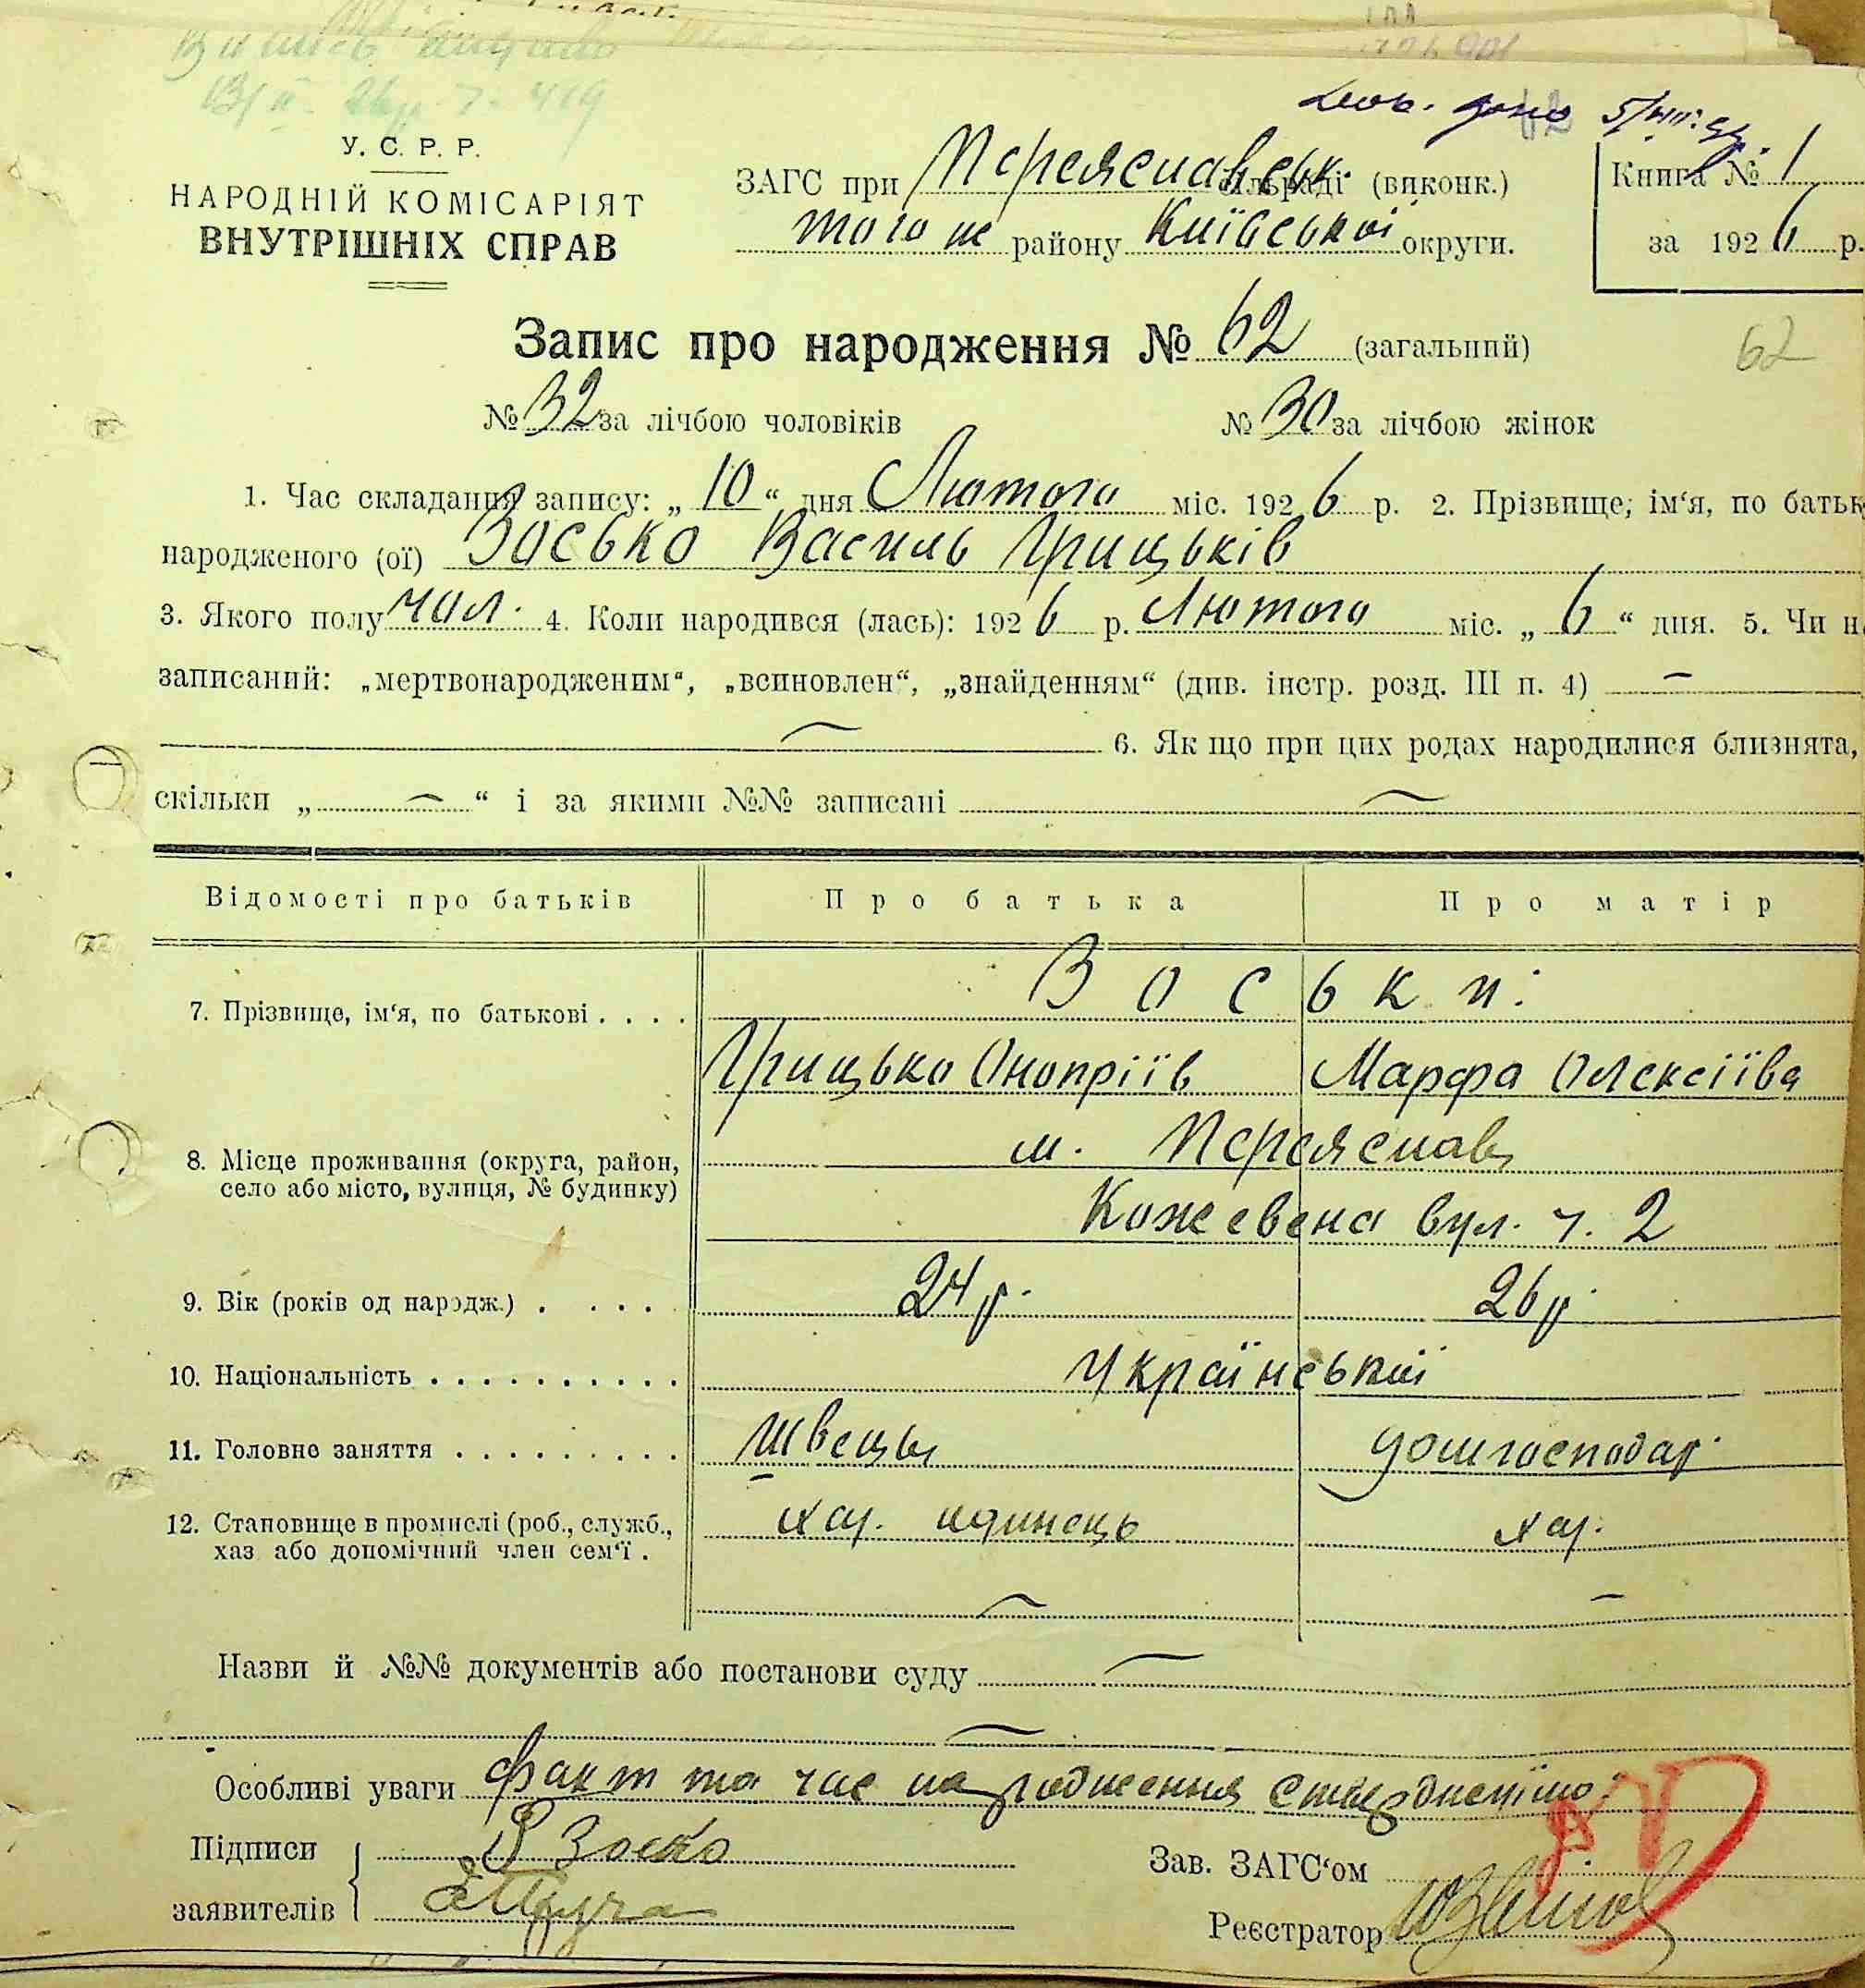 У. С. Р. Р.
НАРОДНІЙ КОМІСАРІЯТ
ВНУТРІШНІХ СПРАВ
ЗАГС при Переяславськ. сільраді (виконк.)
того ж району Київської округи.
Книга № 1
за 1926 р.
Запис про народження № 62 (загальний)
62
№ 32 за лічбою чоловіків № 30 за лічбою жінок
1. Час складання запису: „ 10 “ дня Лютого міс. 1926 р. 2. Прізвище, ім‘я, по батьк
народженого (ої) Зосько Василь Грицьків
3. Якого полу чол. 4. Коли народився (лась): 1926 р. Лютого міс. „ 6 “ дня. 5. Чи н
записаний: „мертвонародженим“, „всиновлен“, „знайденням“ (див. інстр. розд. III п. 4) —
— 6. Як що при цих родах народилися близнята,
скільки „ — “ і за якими №№ записані —
Відомості про батьків Про батька Про матір
7. Прізвище, ім‘я, по батькові . . . . Зоськи:
Грицько Онопріїв Марфа Олексіїва
8. Місце проживання (округа, район, село або місто, вулиця, № будинку) м. Переяслав
Кожевена вул. ч. 2
9. Вік (років од народж.) . . . . . 24 р. 26 р.
10. Національність . . . . . . . . . . Української
11. Головне заняття . . . . . . . . . швець домгосподар.
12. Становище в промислі (роб., служб., хаз. або допомічний член сем‘ї . хаз. одинець хаз.
— —
Назви й №№ документів або постанови суду —
—
Особливі уваги факт та час народження
Підписи заявителів
Зосько
Зав. ЗАГС‘ом
Реєстратор